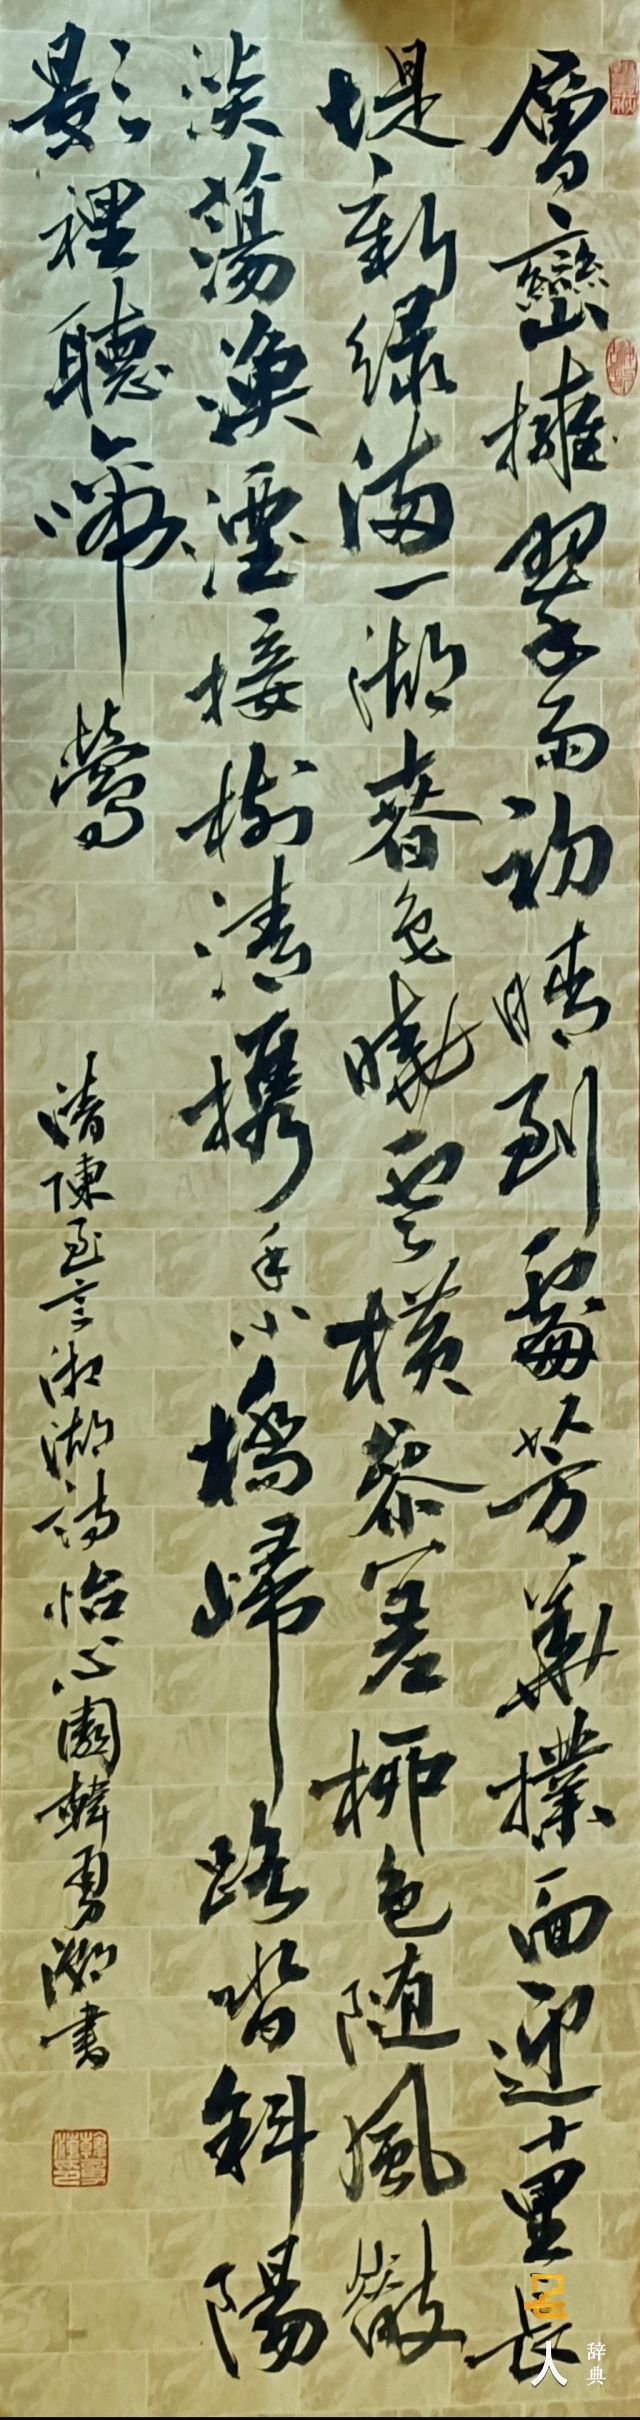 層巒擁翠雨初晴到處芳華撲面迎十里長
堤新綠滿一湖春色曉雲橫參差柳色随風微
淡蕩漁湮接樹清攜手小橋歸路斜陽
影裡聽啼鶯
清陳至言湘湖詩怡心園韓勇潮書
名人
辞典